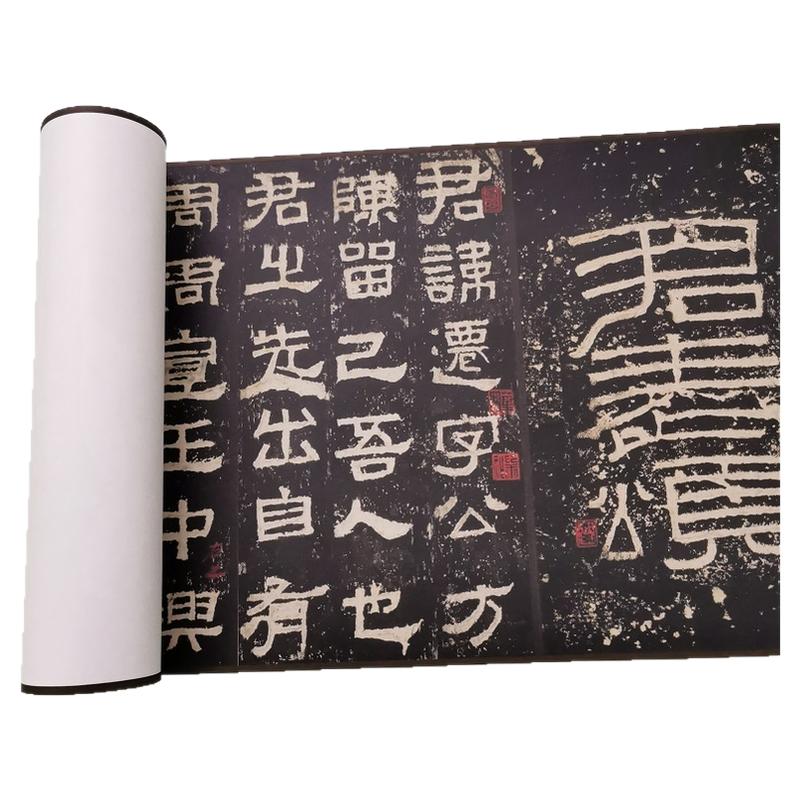 君表頌
君諱遷字公方
陳留己吾人也
君之先出自有
周周宣王中興